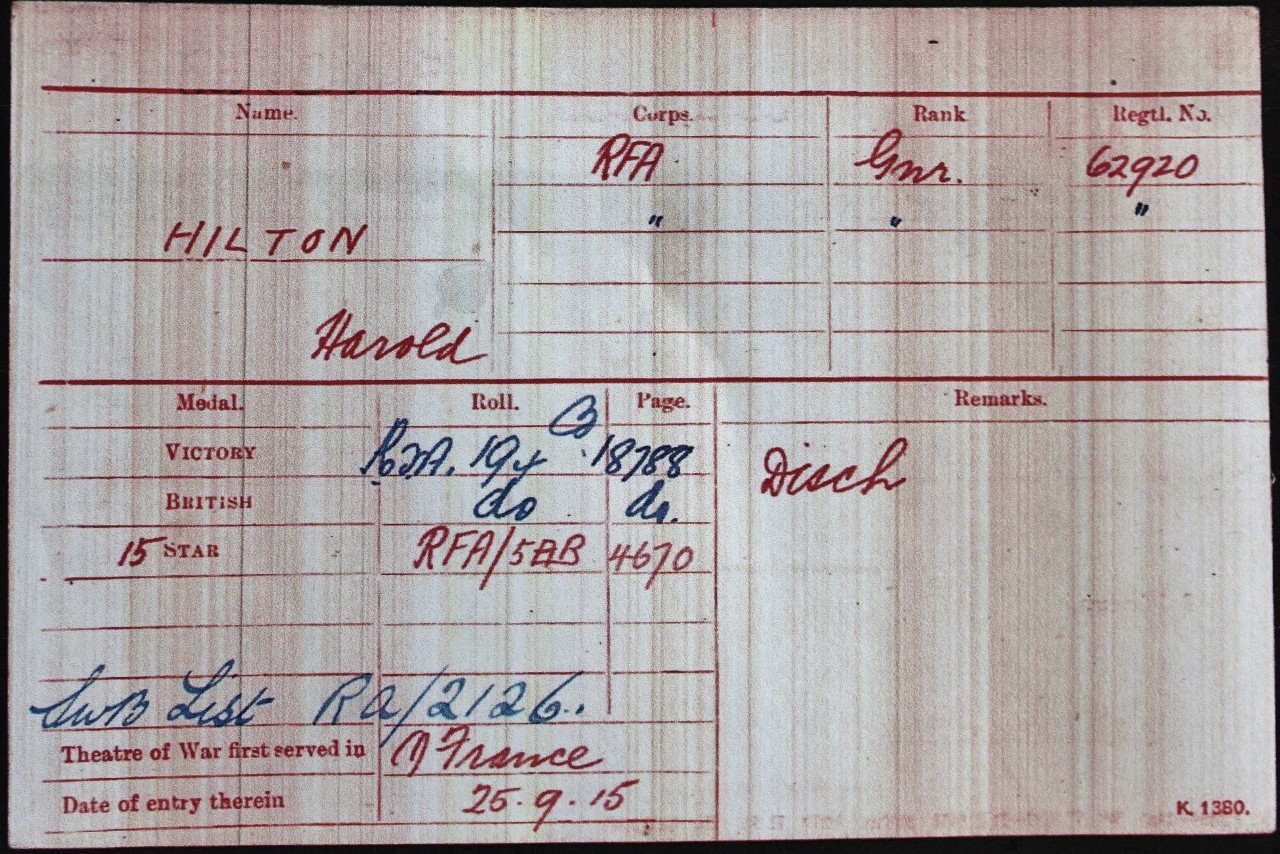 Name. Corps. Rank Regtl. No.
RFA Gnr. 62920
HILTON " " "
Harold
Medal. Roll. Page. Remarks.
B
VICTORY RFA. 19x 18788 Disch
BRITISH do do.
15 STAR RFA/5AB 4670
SWB List RA/2126.
Theatre of War first served in (1) France
Date of entry therein 25.9.15
K. 1380.